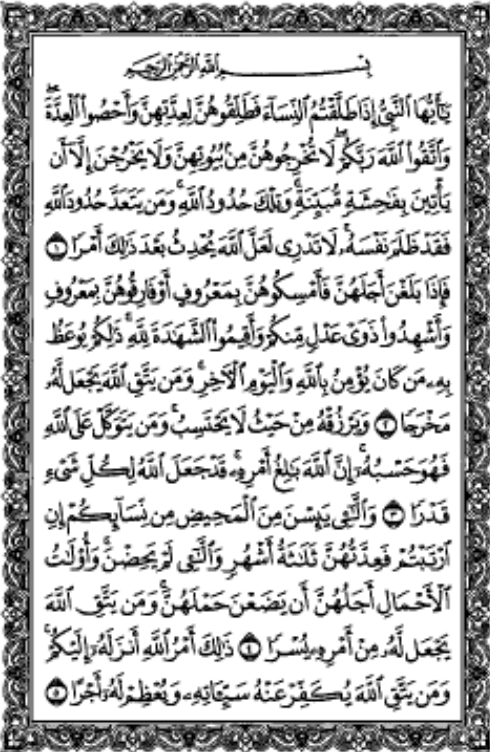 بِسْمِ اللَّهِ الرَّحْمَٰنِ الرَّحِيمِ
يَٰٓأَيُّهَا ٱلنَّبِىُّ إِذَا طَلَّقْتُمُ ٱلنِّسَآءَ فَطَلِّقُوهُنَّ لِعِدَّتِهِنَّ وَأَحْصُوا۟ ٱلْعِدَّةَ ۖ
وَٱتَّقُوا۟ ٱللَّهَ رَبَّكُمْ ۖ لَا تُخْرِجُوهُنَّ مِنۢ بُيُوتِهِنَّ وَلَا يَخْرُجْنَ إِلَّآ أَن
يَأْتِينَ بِفَٰحِشَةٍ مُّبَيِّنَةٍ ۚ وَتِلْكَ حُدُودُ ٱللَّهِ ۚ وَمَن يَتَعَدَّ حُدُودَ ٱللَّهِ
فَقَدْ ظَلَمَ نَفْسَهُۥ ۚ لَا تَدْرِى لَعَلَّ ٱللَّهَ يُحْدِثُ بَعْدَ ذَٰلِكَ أَمْرًا ١
فَإِذَا بَلَغْنَ أَجَلَهُنَّ فَأَمْسِكُوهُنَّ بِمَعْرُوفٍ أَوْ فَارِقُوهُنَّ بِمَعْرُوفٍ
وَأَشْهِدُوا۟ ذَوَىْ عَدْلٍ مِّنكُمْ وَأَقِيمُوا۟ ٱلشَّهَٰدَةَ لِلَّهِ ۚ ذَٰلِكُمْ يُوعَظُ
بِهِۦ مَن كَانَ يُؤْمِنُ بِٱللَّهِ وَٱلْيَوْمِ ٱلْءَاخِرِ ۚ وَمَن يَتَّقِ ٱللَّهَ يَجْعَل لَّهُۥ
مَخْرَجًا ٢ وَيَرْزُقْهُ مِنْ حَيْثُ لَا يَحْتَسِبُ ۚ وَمَن يَتَوَكَّلْ عَلَى ٱللَّهِ
فَهُوَ حَسْبُهُۥٓ ۚ إِنَّ ٱللَّهَ بَٰلِغُ أَمْرِهِۦ ۚ قَدْ جَعَلَ ٱللَّهُ لِكُلِّ شَىْءٍ
قَدْرًا ٣ وَٱلَّٰٓـِٔى يَئِسْنَ مِنَ ٱلْمَحِيضِ مِن نِّسَآئِكُمْ إِنِ
ٱرْتَبْتُمْ فَعِدَّتُهُنَّ ثَلَٰثَةُ أَشْهُرٍ وَٱلَّٰٓـِٔى لَمْ يَحِضْنَ ۚ وَأُو۟لَٰتُ
ٱلْأَحْمَالِ أَجَلُهُنَّ أَن يَضَعْنَ حَمْلَهُنَّ ۚ وَمَن يَتَّقِ ٱللَّهَ
يَجْعَل لَّهُۥ مِنْ أَمْرِهِۦ يُسْرًا ٤ ذَٰلِكَ أَمْرُ ٱللَّهِ أَنزَلَهُۥٓ إِلَيْكُمْ ۚ
وَمَن يَتَّقِ ٱللَّهَ يُكَفِّرْ عَنْهُ سَيِّـَٔاتِهِۦ وَيُعْظِمْ لَهُۥٓ أَجْرًا ٥